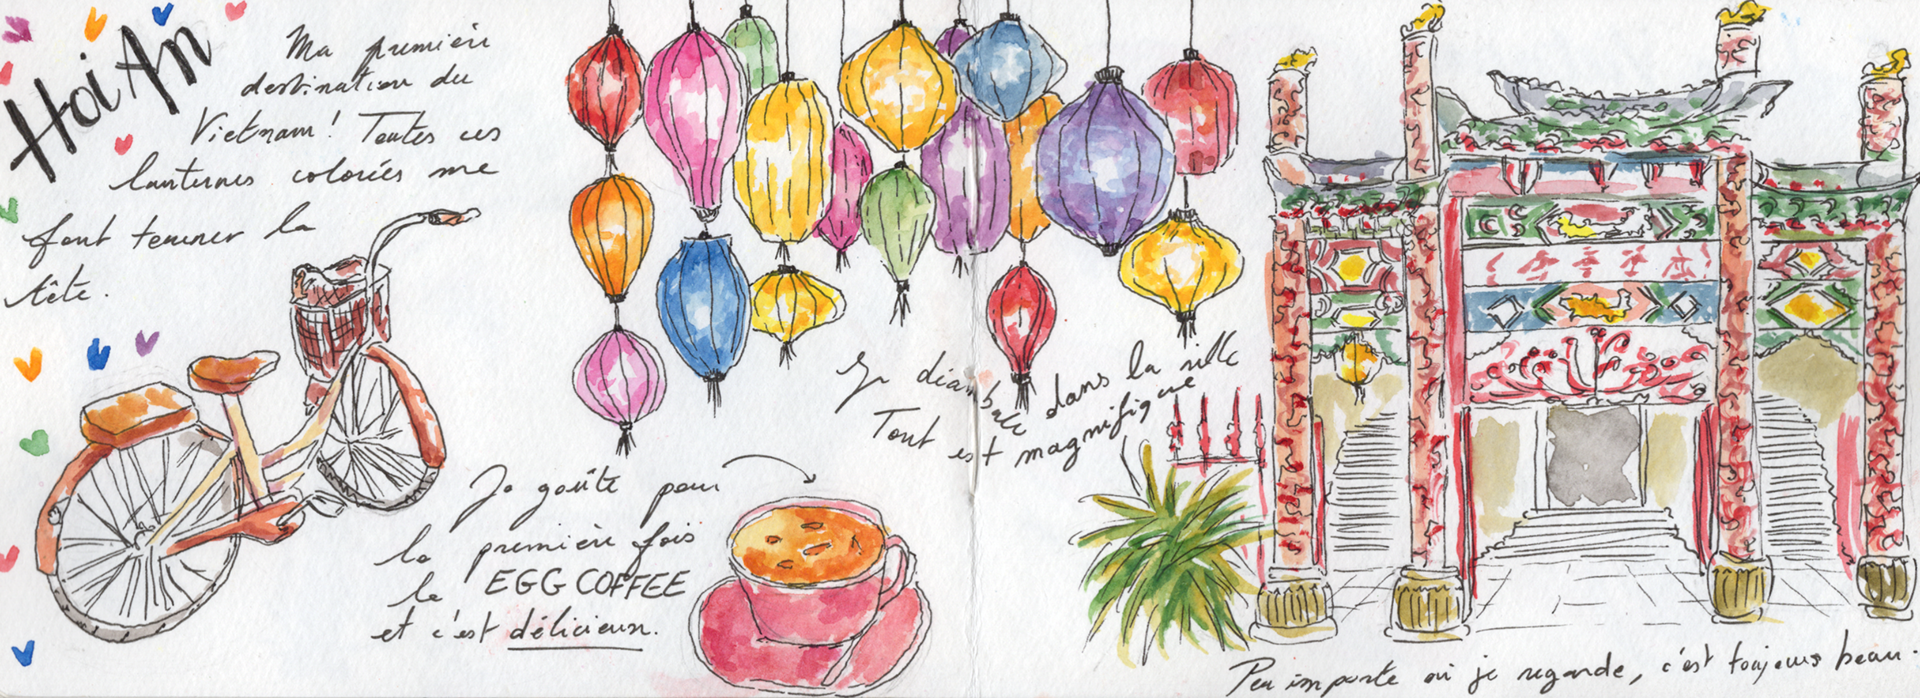 Hoi An
Ma première
destination du
Vietnam ! Toutes ces
lanternes colorées me
font tourner la
tête.
Je goûte pour
la première fois
le EGG COFFEE
et c'est délicieux.
Je déambule dans la ville
Tout est magnifique
Peu importe où je regarde, c'est toujours beau.